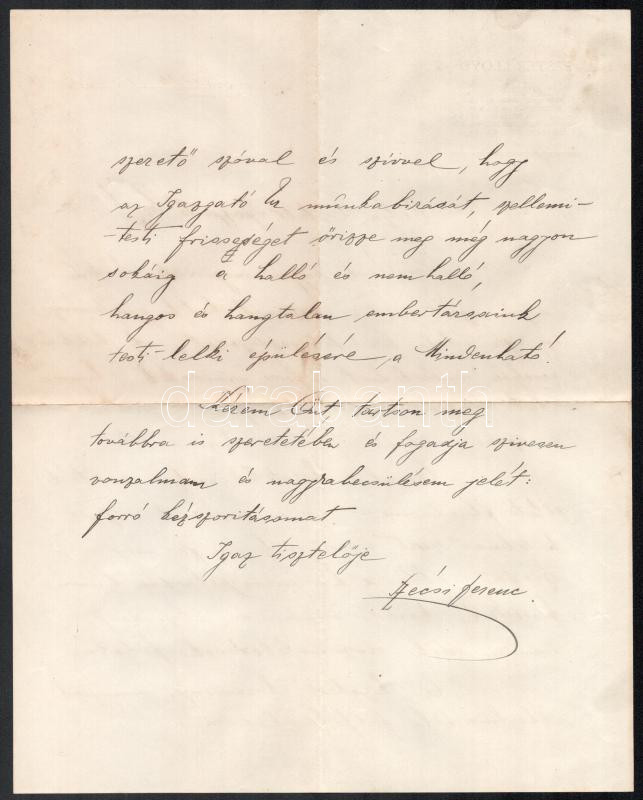 szerető szóval és szivvel, hogy
az Igazgató Úr munkabirását, szellemi-
-testi frisseségét őrizze meg még nagyon
sokáig a halló és nemhalló,
hangos és hangtalan embertársaink
testi-lelki épülésére, a Mindenható!
Kérem Önt, tartson meg
továbbra is szeretetében és fogadja szivesen
vonzalmam és nagyrabecsülésem jelét:
forró kézszoritásomat.
Igaz tisztelője
Ferenc
darabanth